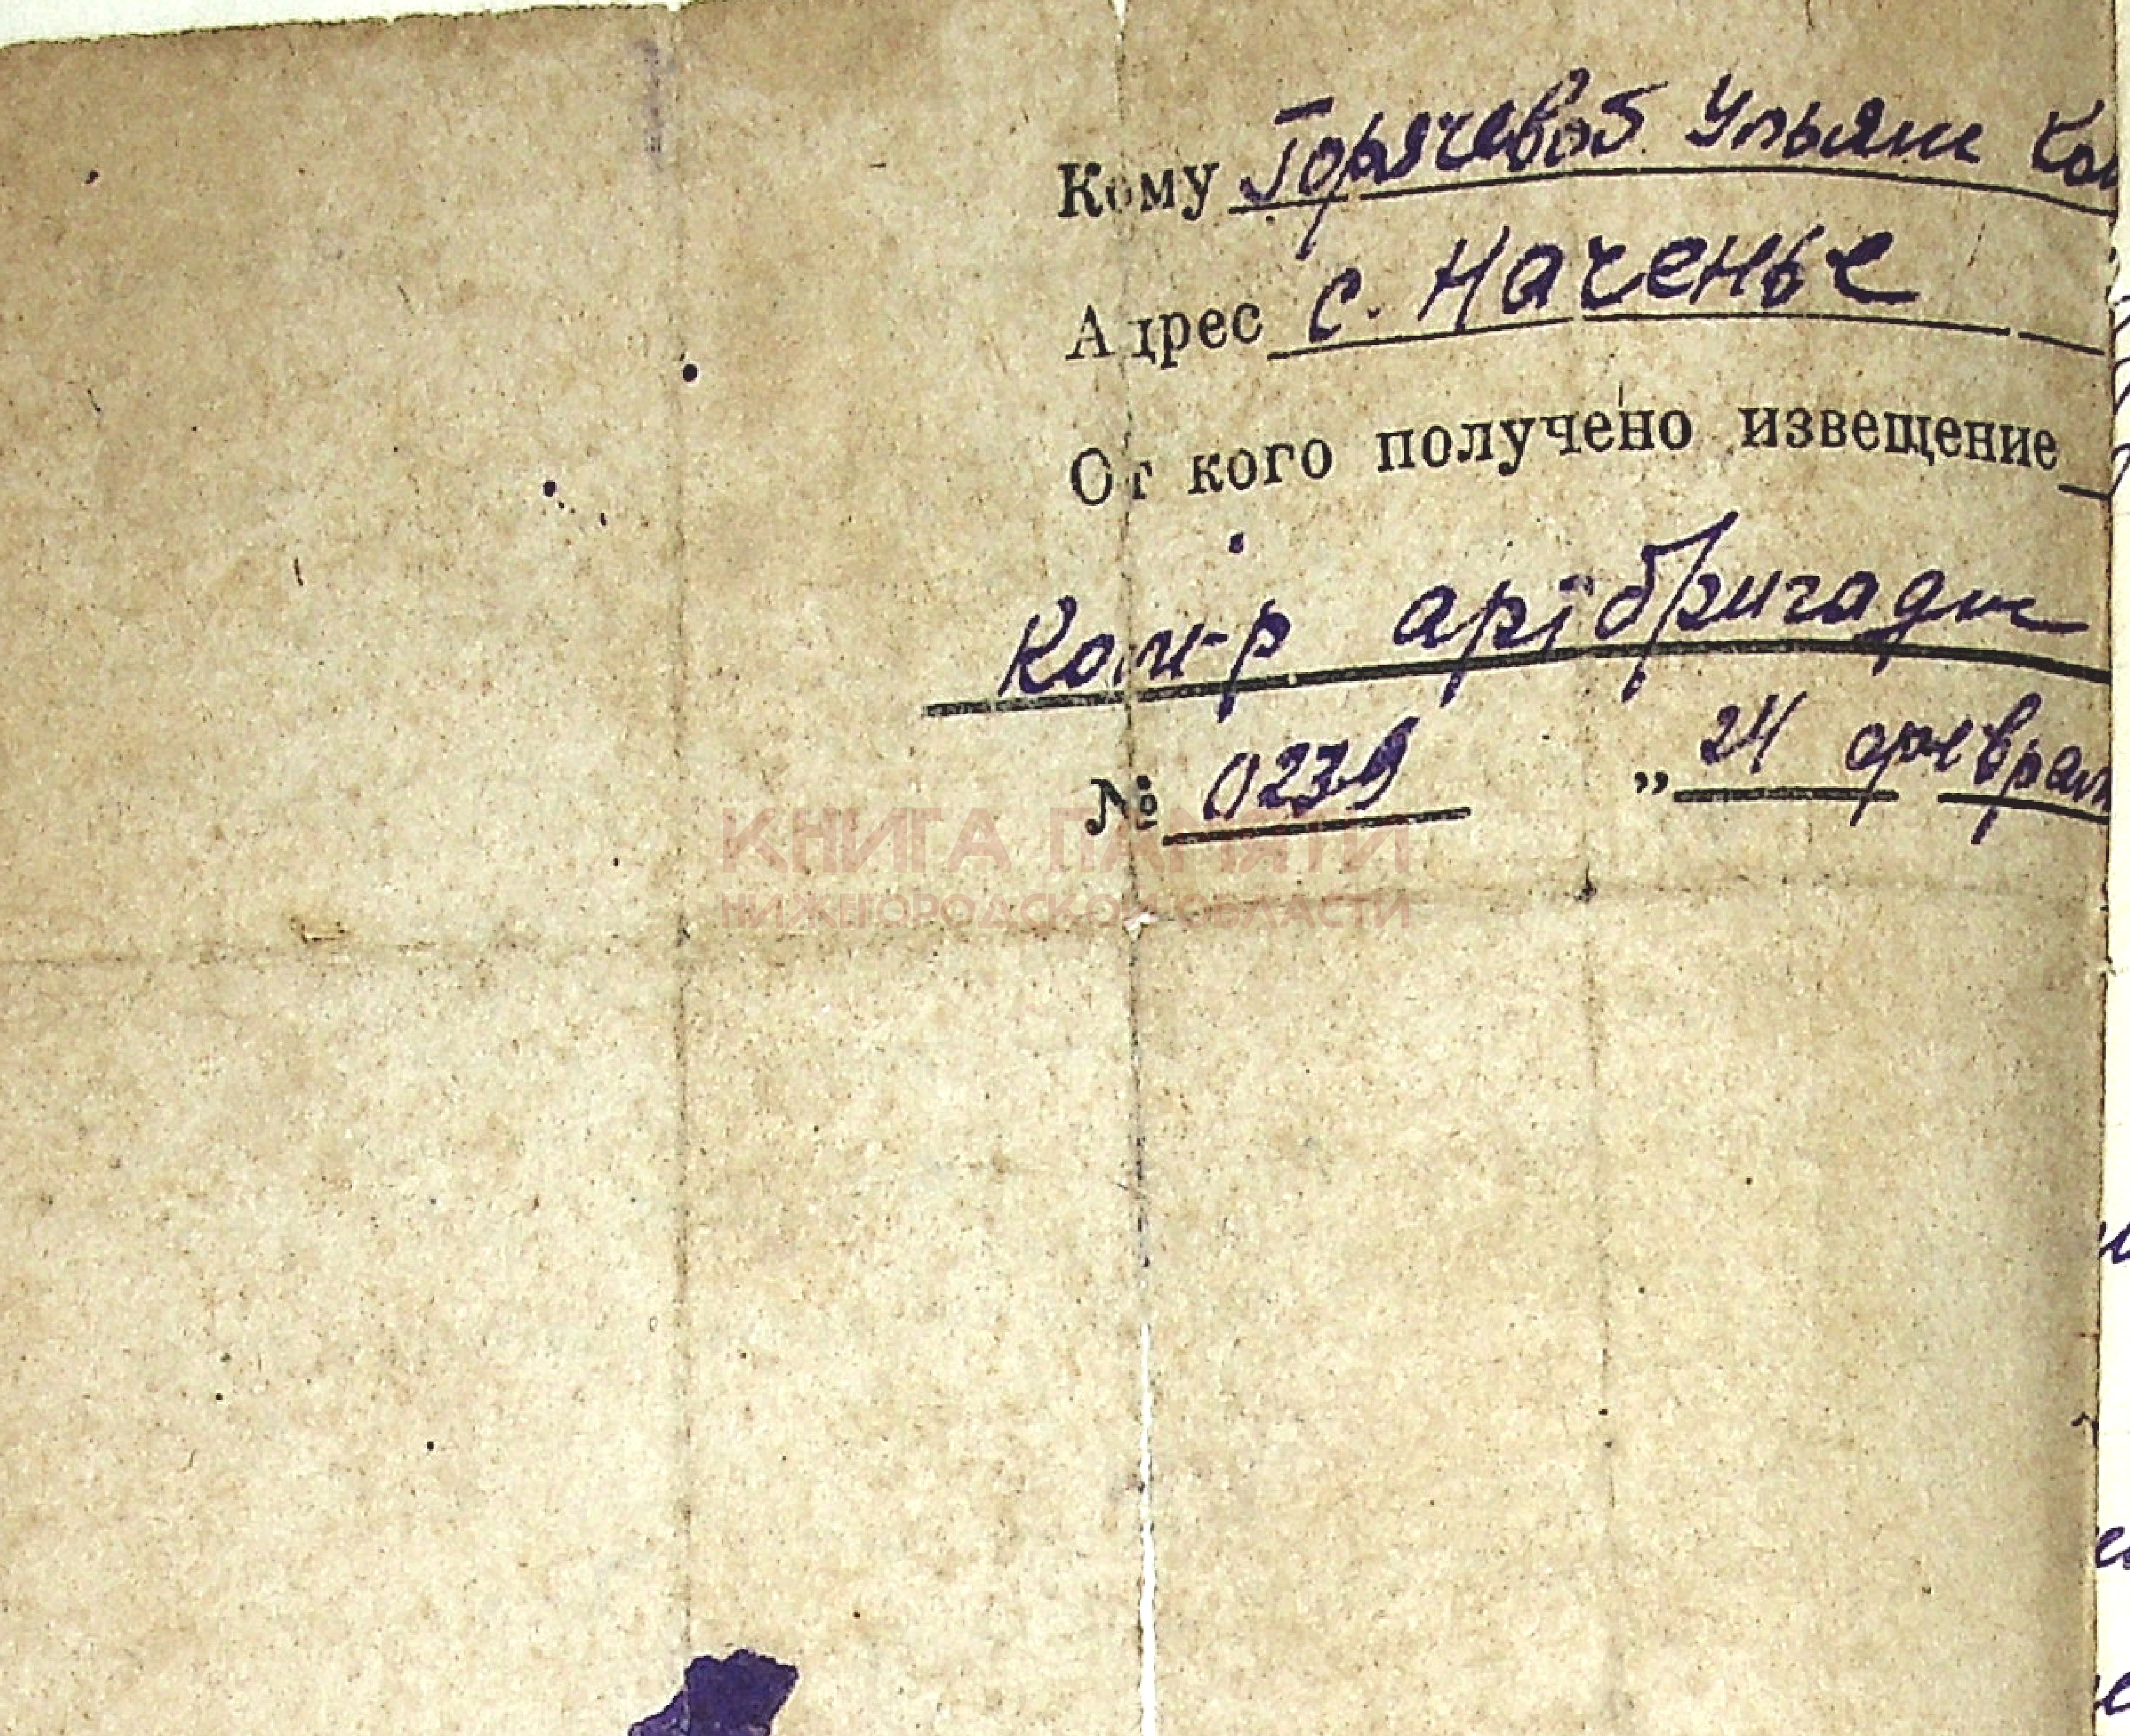 Кому Горячевой Ульяне
Адрес с. Наченье
От кого получено извещение
Ком-р артбригады
№ 0239 „ 24 феврал
КНИГА ПАМЯТИ
НИЖЕГОРОДСКОЙ ОБЛАСТИ